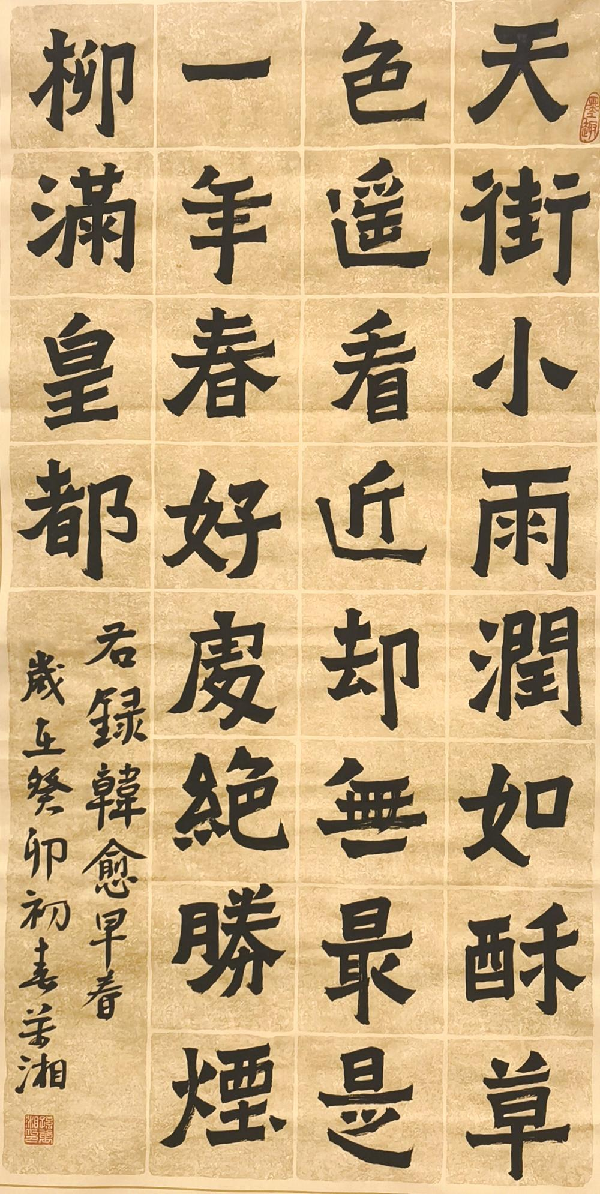 天街小雨潤如酥草
色遥看近却無最是
一年春好處絶勝煙
柳滿皇都
右録韓愈早春
歲在癸卯初春湘
墨趣